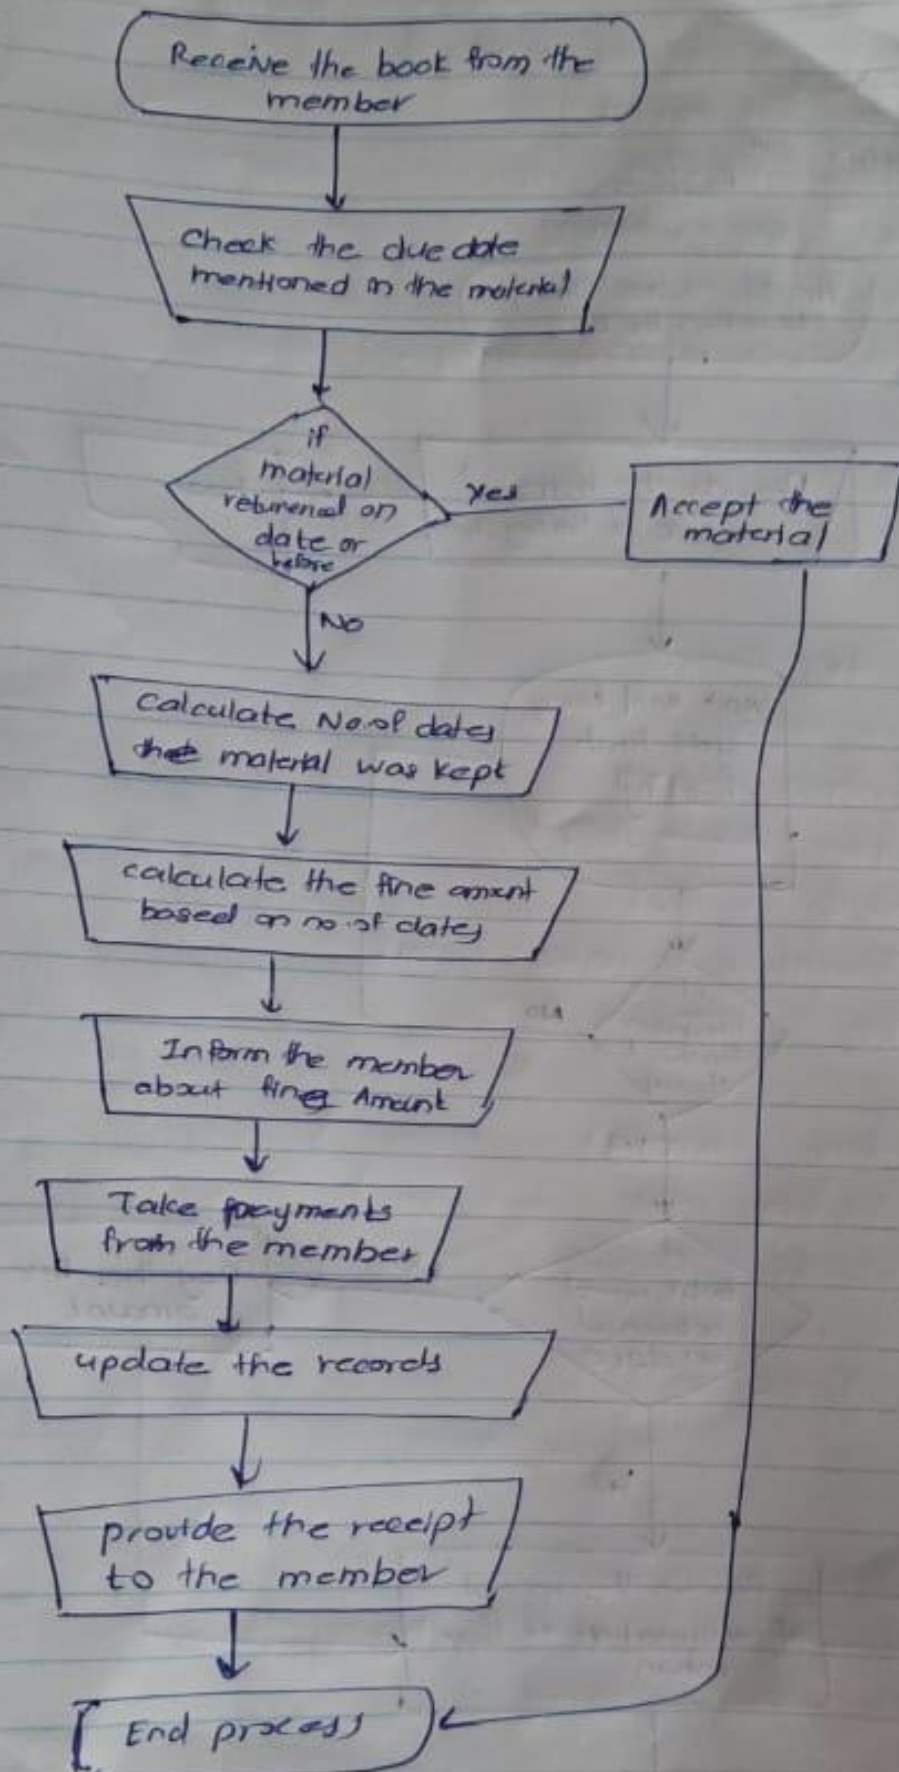 Receive the book from the
member
Check the due date
mentioned in the material
if
material
returened on
date or
before
Yes
Accept the
material
No
Calculate No.of dates
the material was kept
calculate the fine amount
based on no.of dates
Inform the member
about fines Amount
Take payments
from the member
update the records
provide the receipt
to the member
End process